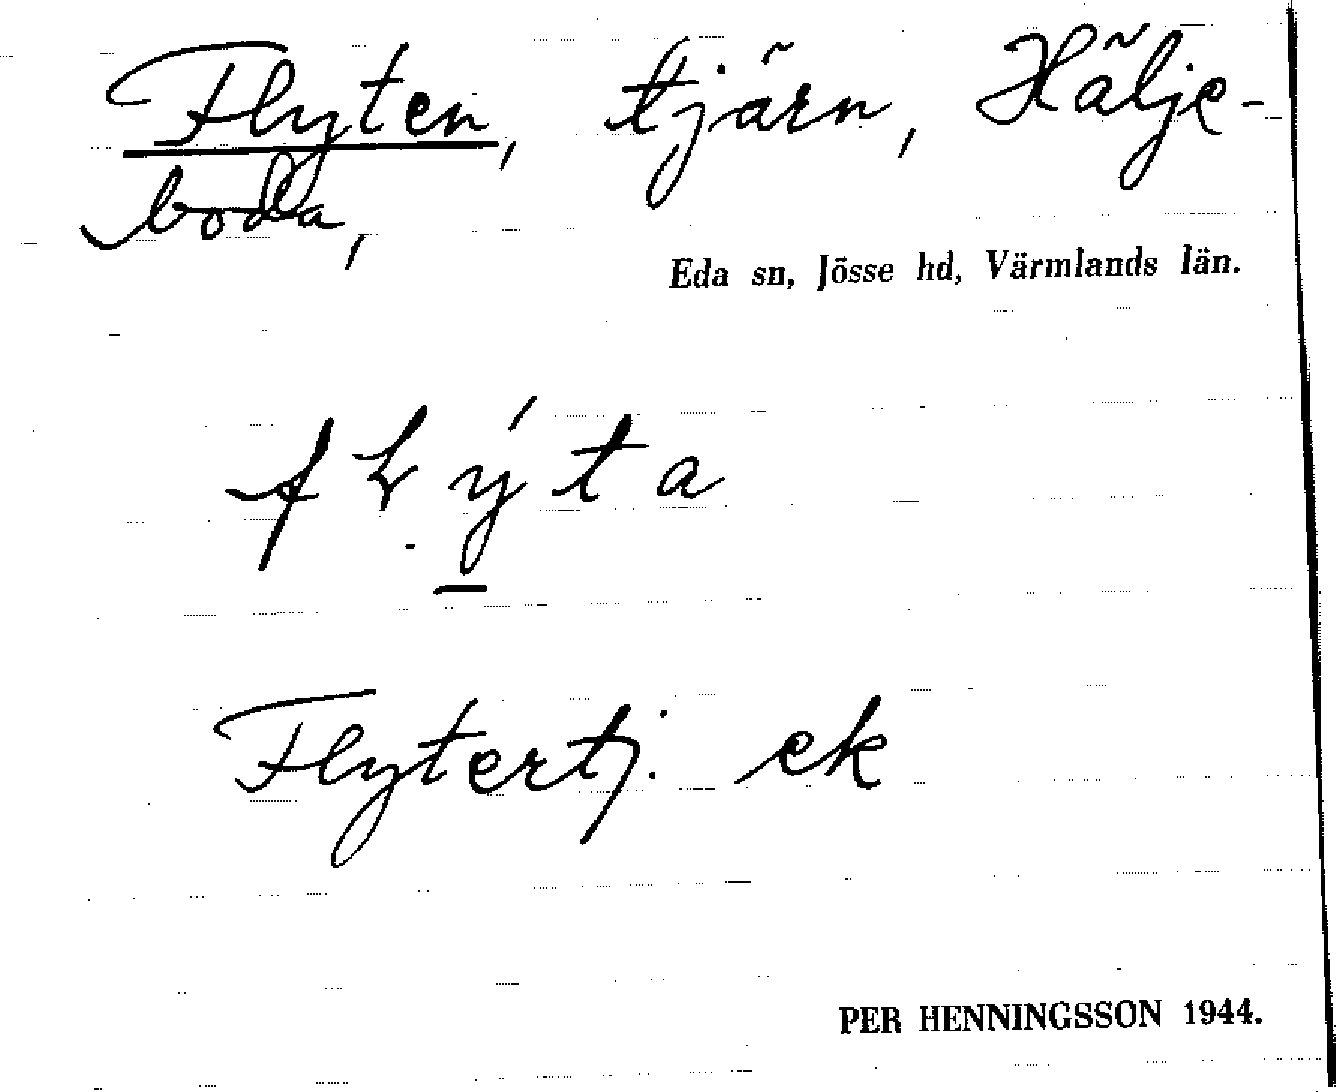 Flyten, tjärn, Hälje-
boda,
Eda sn, Jösse hd, Värmlands län.
Flytertj. ek
PER HENNINGSSON 1944.